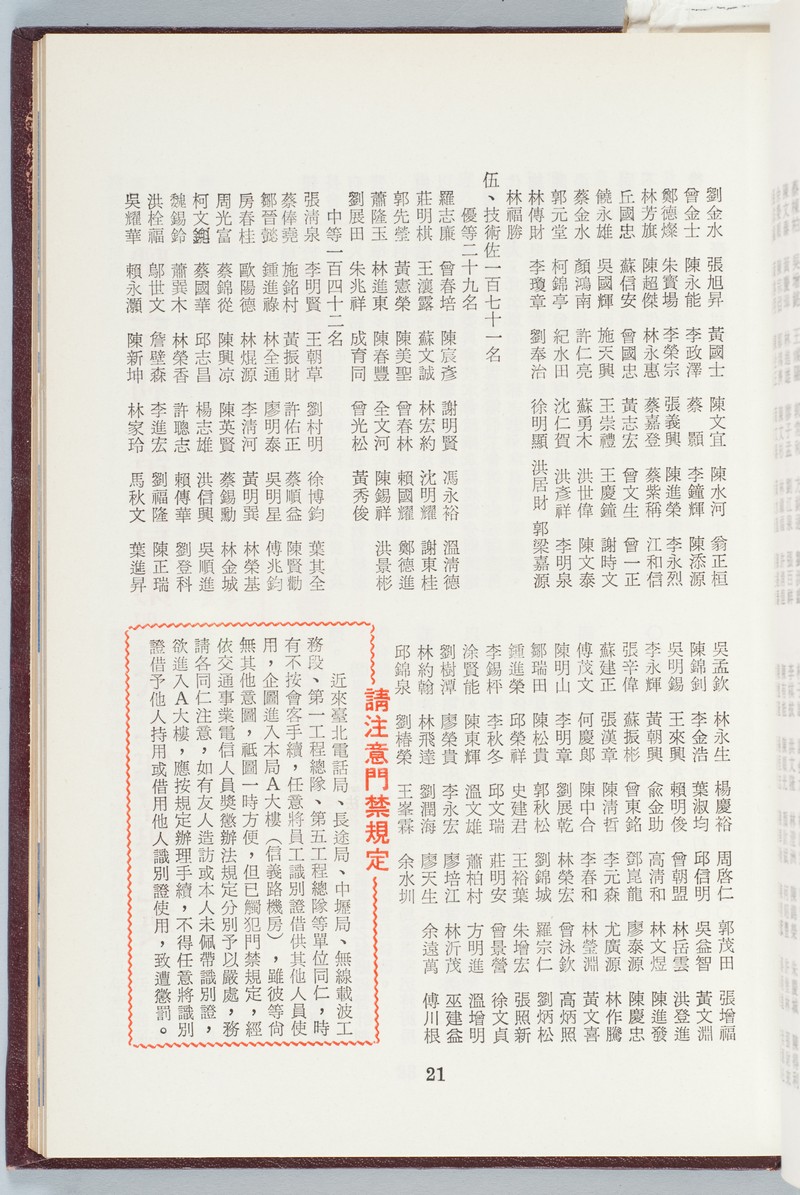 劉金水 張旭昇 黃國士 陳文宜 陳水河 翁正桓
曾金士 陳永能 李政澤 蔡 顥 李鐘輝 陳添源
鄭德燦 朱寶場 李榮宗 張義興 陳進榮 李永烈
林芳旗 陳超傑 林永惠 蔡嘉登 蔡紫稱 江和信
丘國忠 蘇信安 曾國忠 黃志宏 曾文生 曾一正
饒永雄 吳國輝 施天興 王崇禮 王慶鐘 謝時文
蔡金水 顏鴻南 許仁亮 蘇勇木 洪世偉 陳文泰
郭元堂 柯錦亭 紀水田 沈仁賀 洪彥祥 李明泉
林傳財 李瓊章 劉奉治 徐明顯 洪居財 郭梁嘉源
林福勝
伍、技術佐一百七十一名
優等二十九名
羅志廉 曾春培 陳宸彥 謝明賢 馮永裕 溫清德
莊明棋 王瀼露 蘇文誠 林宏約 沈明耀 謝東桂
郭先瑩 黃憲榮 陳美聖 曾春林 賴國耀 鄭德進
蕭隆玉 林進東 陳春豐 全文河 陳錫祥 洪景彬
劉展田 朱兆祥 成育同 曾光松 黃秀俊
中等一百四十二名
張清泉 李明賢 王朝草 劉村明 徐博鈞 葉其全
蔡俸堯 施銘村 黃振財 許佑正 蔡順益 陳賢勸
鄒晉懿 鍾進祿 林全通 廖明泰 吳明星 傅兆鈞
房春桂 歐陽德 林焜源 李清河 黃明巽 林榮基
周光富 蔡錦從 陳興凉 陳英賢 蔡錫勳 林金城
柯文鎴 蔡國華 邱志昌 楊志雄 洪信興 吳順進
魏錫鈴 蕭巽木 林榮香 許聰志 賴傳華 劉登科
洪栓福 鄔世文 詹壁森 李進宏 劉福隆 陳正瑞
吳耀華 賴永灝 陳新坤 林家玲 馬秋文 葉進昇
吳孟欽 林永生 楊慶裕 周啓仁 郭茂田 張增福
陳錦釗 李金浩 葉淑均 邱信明 吳益智 黃文淵
吳明錫 王來興 賴明俊 曾朝盟 林岳雲 洪登進
李永輝 黃朝興 兪金助 高清和 林文煜 陳進發
張辛偉 蘇振彬 曾東銘 鄧崑龍 廖泰源 陳慶忠
蘇建正 張漢章 陳清哲 李元森 尤廣源 林作騰
傅茂文 何慶郎 陳中合 李春和 林瑩淵 黃文喜
陳明山 李明章 劉展乾 林榮宏 曾泳欽 高炳照
鄒瑞田 陳松貴 郭秋松 劉錦城 羅宗仁 劉炳松
鍾進榮 邱榮祥 史建君 王裕葉 朱增宏 張照新
李錫枰 李秋冬 邱文瑞 莊明安 曾景營 徐文貞
涂賢能 陳東輝 溫文雄 蕭柏村 方明進 溫增明
劉樹潭 廖榮貴 李永宏 廖培江 林沂茂 巫建益
林約翰 林飛達 劉潤海 廖天生 余遠萬 傅川根
邱錦泉 劉椿榮 王峯霖 余水圳
請注意門禁規定
近來臺北電話局、長途局、中壢局、無線載波工
務段、第一工程總隊、第五工程總隊等單位同仁，時
有不按會客手續，任意將員工識別證借供其他人員使
用，企圖進入本局A大樓（信義路機房），雖彼等尙
無其他意圖，祗圖一時方便，但已觸犯門禁規定，經
依交通事業電信人員獎懲辦法規定分別予以嚴處，務
請各同仁注意，如有友人造訪或本人未佩帶識別證，
欲進入A大樓，應按規定辦理手續，不得任意將識別
證借予他人持用或借用他人識別證使用，致遭懲罰。
21